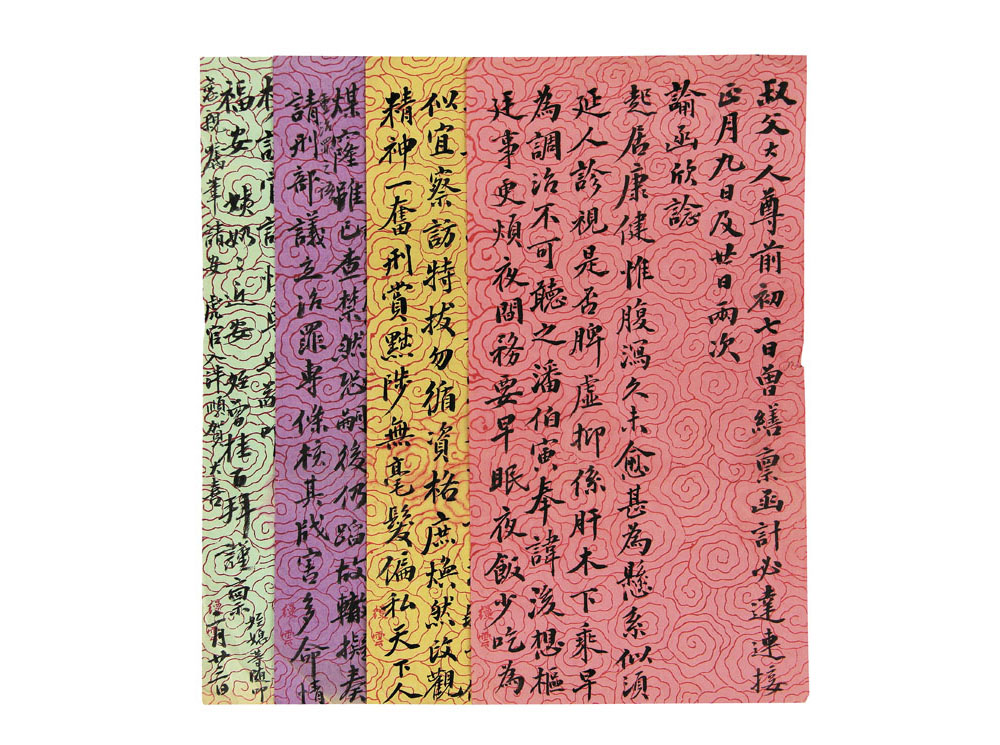 叔父大人尊前初七日曾繕禀函計必達連接
正月九日及廿日兩次
諭函欣諗
起居康健惟腹瀉久未愈甚為懸系似須
延人診視是否脾虛抑係肝木下乘早
為調治不可聽之潘伯寅奉諱後想樞
廷事更煩夜間務要早眠夜飯少吃為
似宜察訪特拔勿循資格庶煥然改觀
精神一奮刑賞黜陟無毫髮偏私天下人
煤窿雖已查禁然恐嗣後仍蹈故轍擬奏
請刑部議立治罪專條核其戕害多命情
福安 姨奶奶近安 侄曾桂百拜謹禀
侄媳等隨叩
二月廿三日
虎官入泮順賀 大喜
穆雲